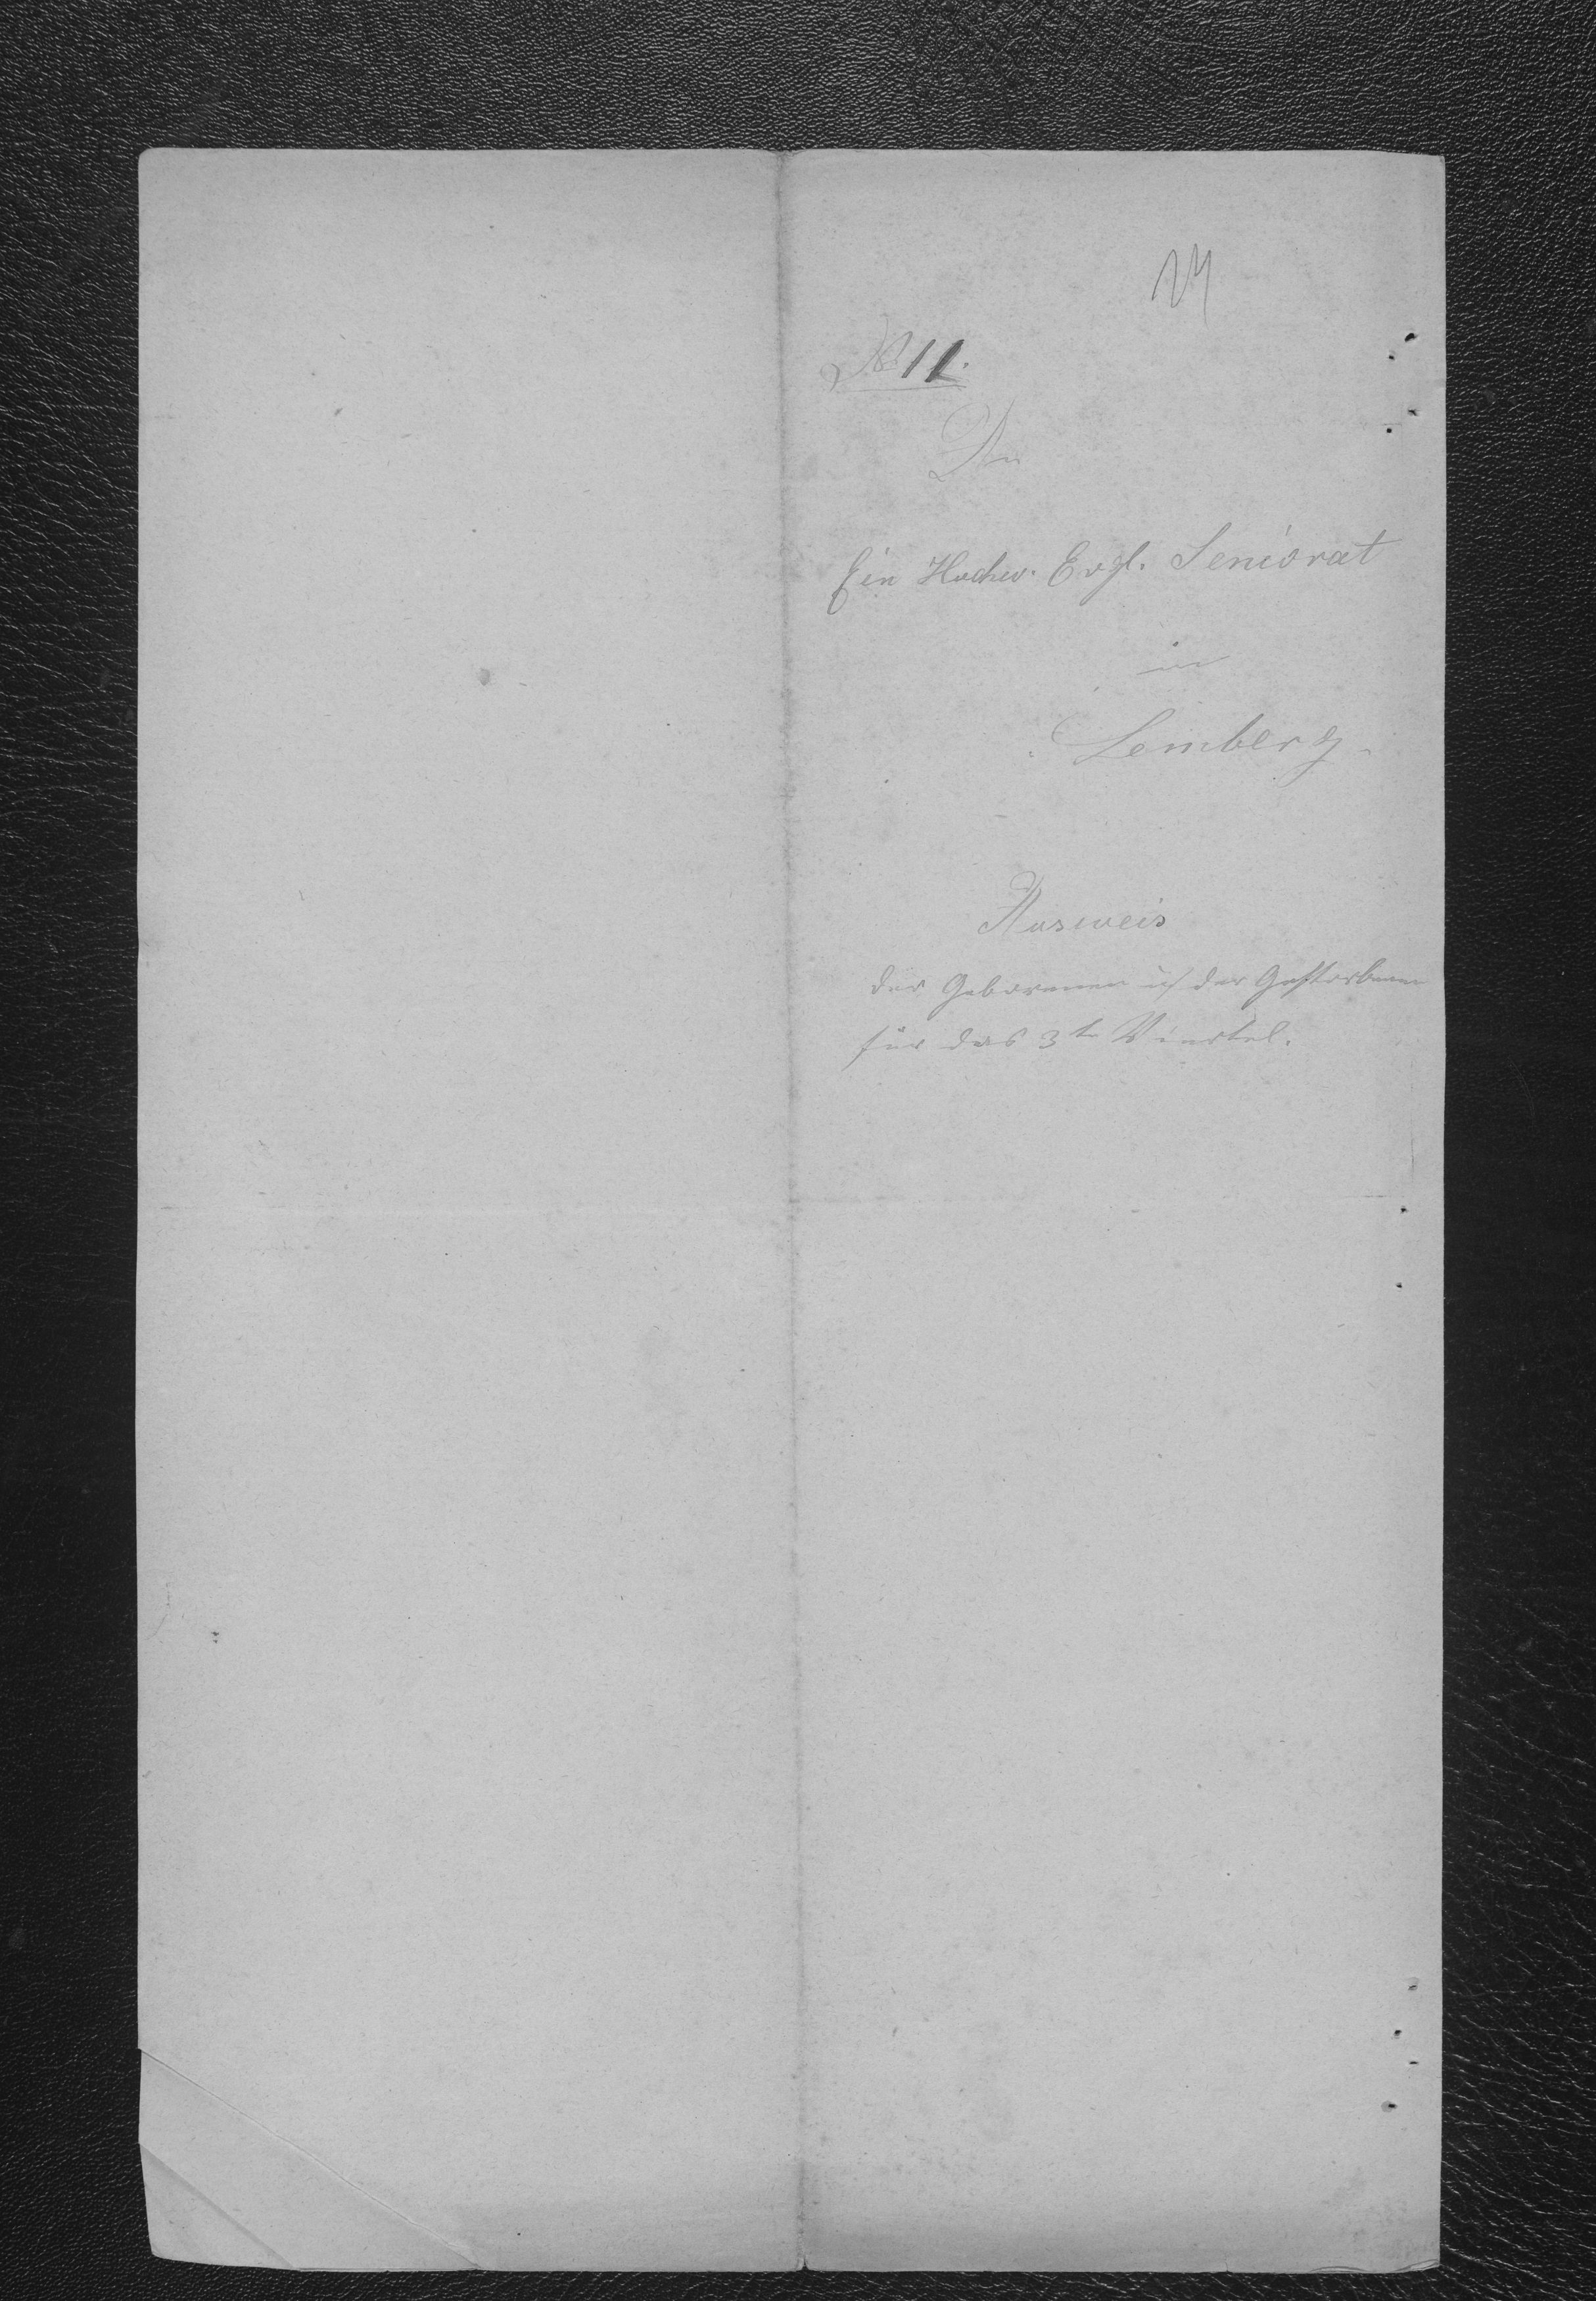 24
№ 11.
An
Ein Hochw. Evgl. Seniorat
in
Lemberg.
Ausweis
der Geborenen u der Gestorbenen
für das 3te Viertel.